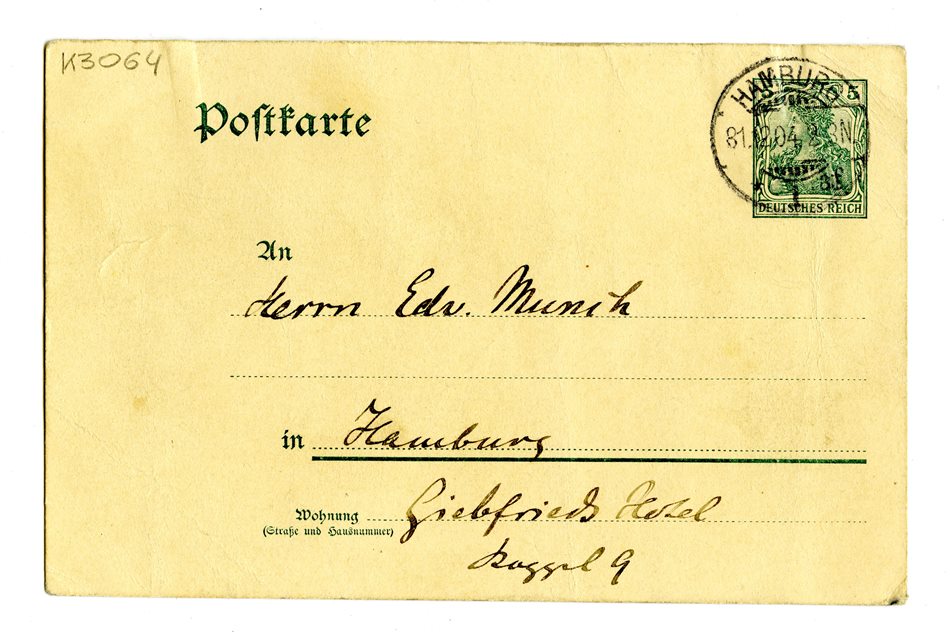 K3064
Postkarte
HAMBURG
5
31.12.04. 2-3N
1
DEUTSCHES REICH
An
Herrn Edv. Munch
in Hamburg
Wohnung Giebfrieds Hotel
(Straße und Hausnummer)
9